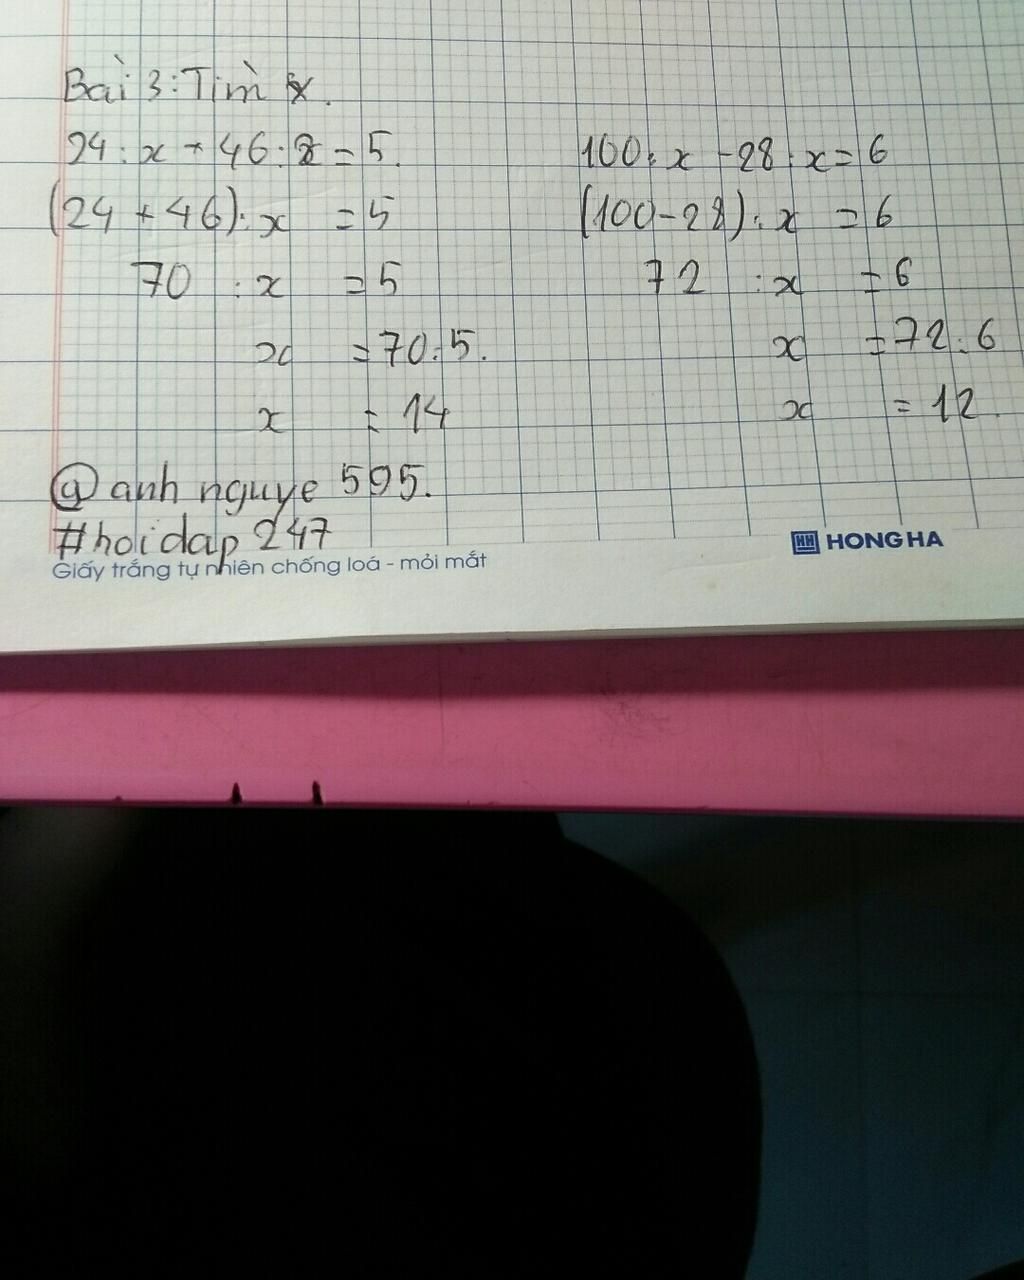 Bài 3: Tìm x.
24 : x + 46 : x = 5.
(24 + 46) : x = 5
70 : x = 5
x = 70 : 5.
x = 14
100 : x - 28 : x = 6
(100 - 28) : x = 6
72 : x = 6
x = 72 : 6
x = 12.
@ anh nguye 595.
#hoidap 247
HH HONG HA
Giấy trắng tự nhiên chống loá - mỏi mắt